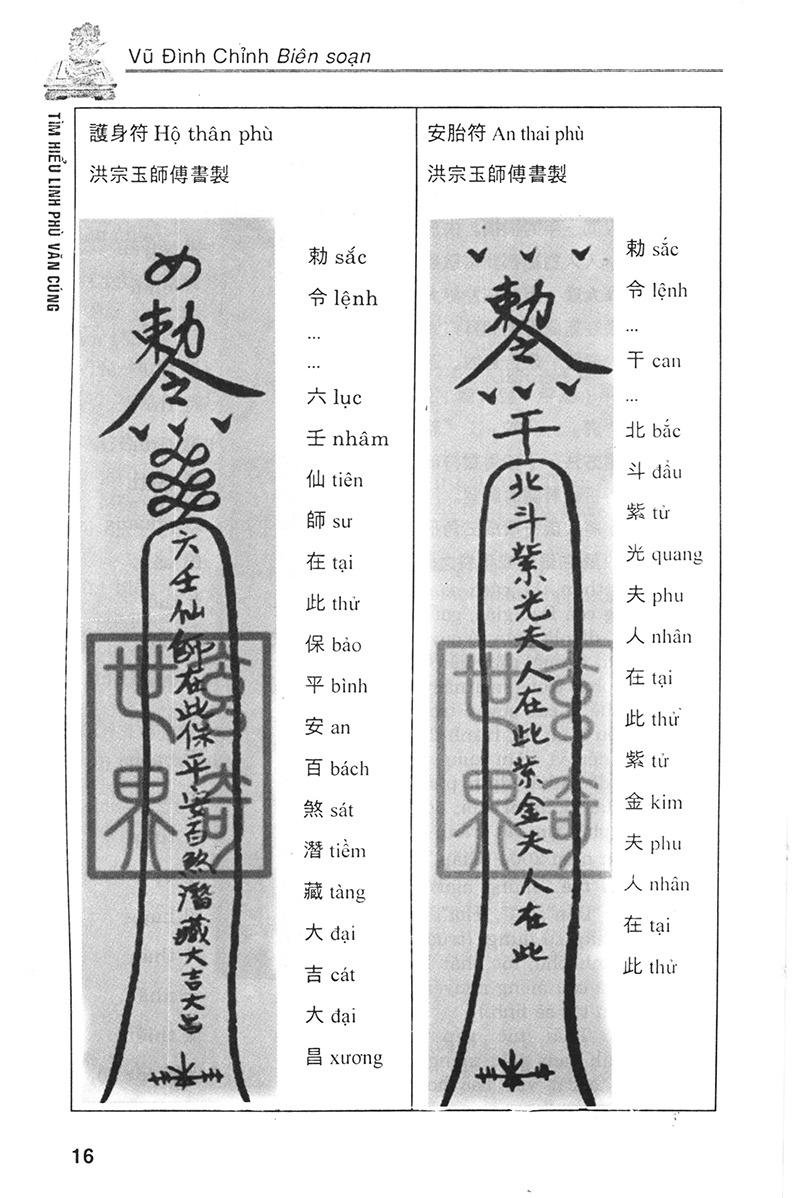 Vũ Đình Chỉnh Biên soạn
TÌM HIỂU LINH PHÙ VĂN CÚNG
護身符 Hộ thân phù
洪宗玉師傅書製
勅令
六壬仙師在此保平安百煞潛藏大吉大昌
世界
勅 sắc
令 lệnh
...
...
六 lục
壬 nhâm
仙 tiên
師 sư
在 tại
此 thử
保 bảo
平 bình
安 an
百 bách
煞 sát
潛 tiềm
藏 tàng
大 đại
吉 cát
大 đại
昌 xương
安胎符 An thai phù
洪宗玉師傅書製
勅令
干
北斗紫光夫人在此紫金夫人在此
世界
勅 sắc
令 lệnh
...
干 can
...
北 bắc
斗 đẩu
紫 tử
光 quang
夫 phu
人 nhân
在 tại
此 thử
紫 tử
金 kim
夫 phu
人 nhân
在 tại
此 thử
16